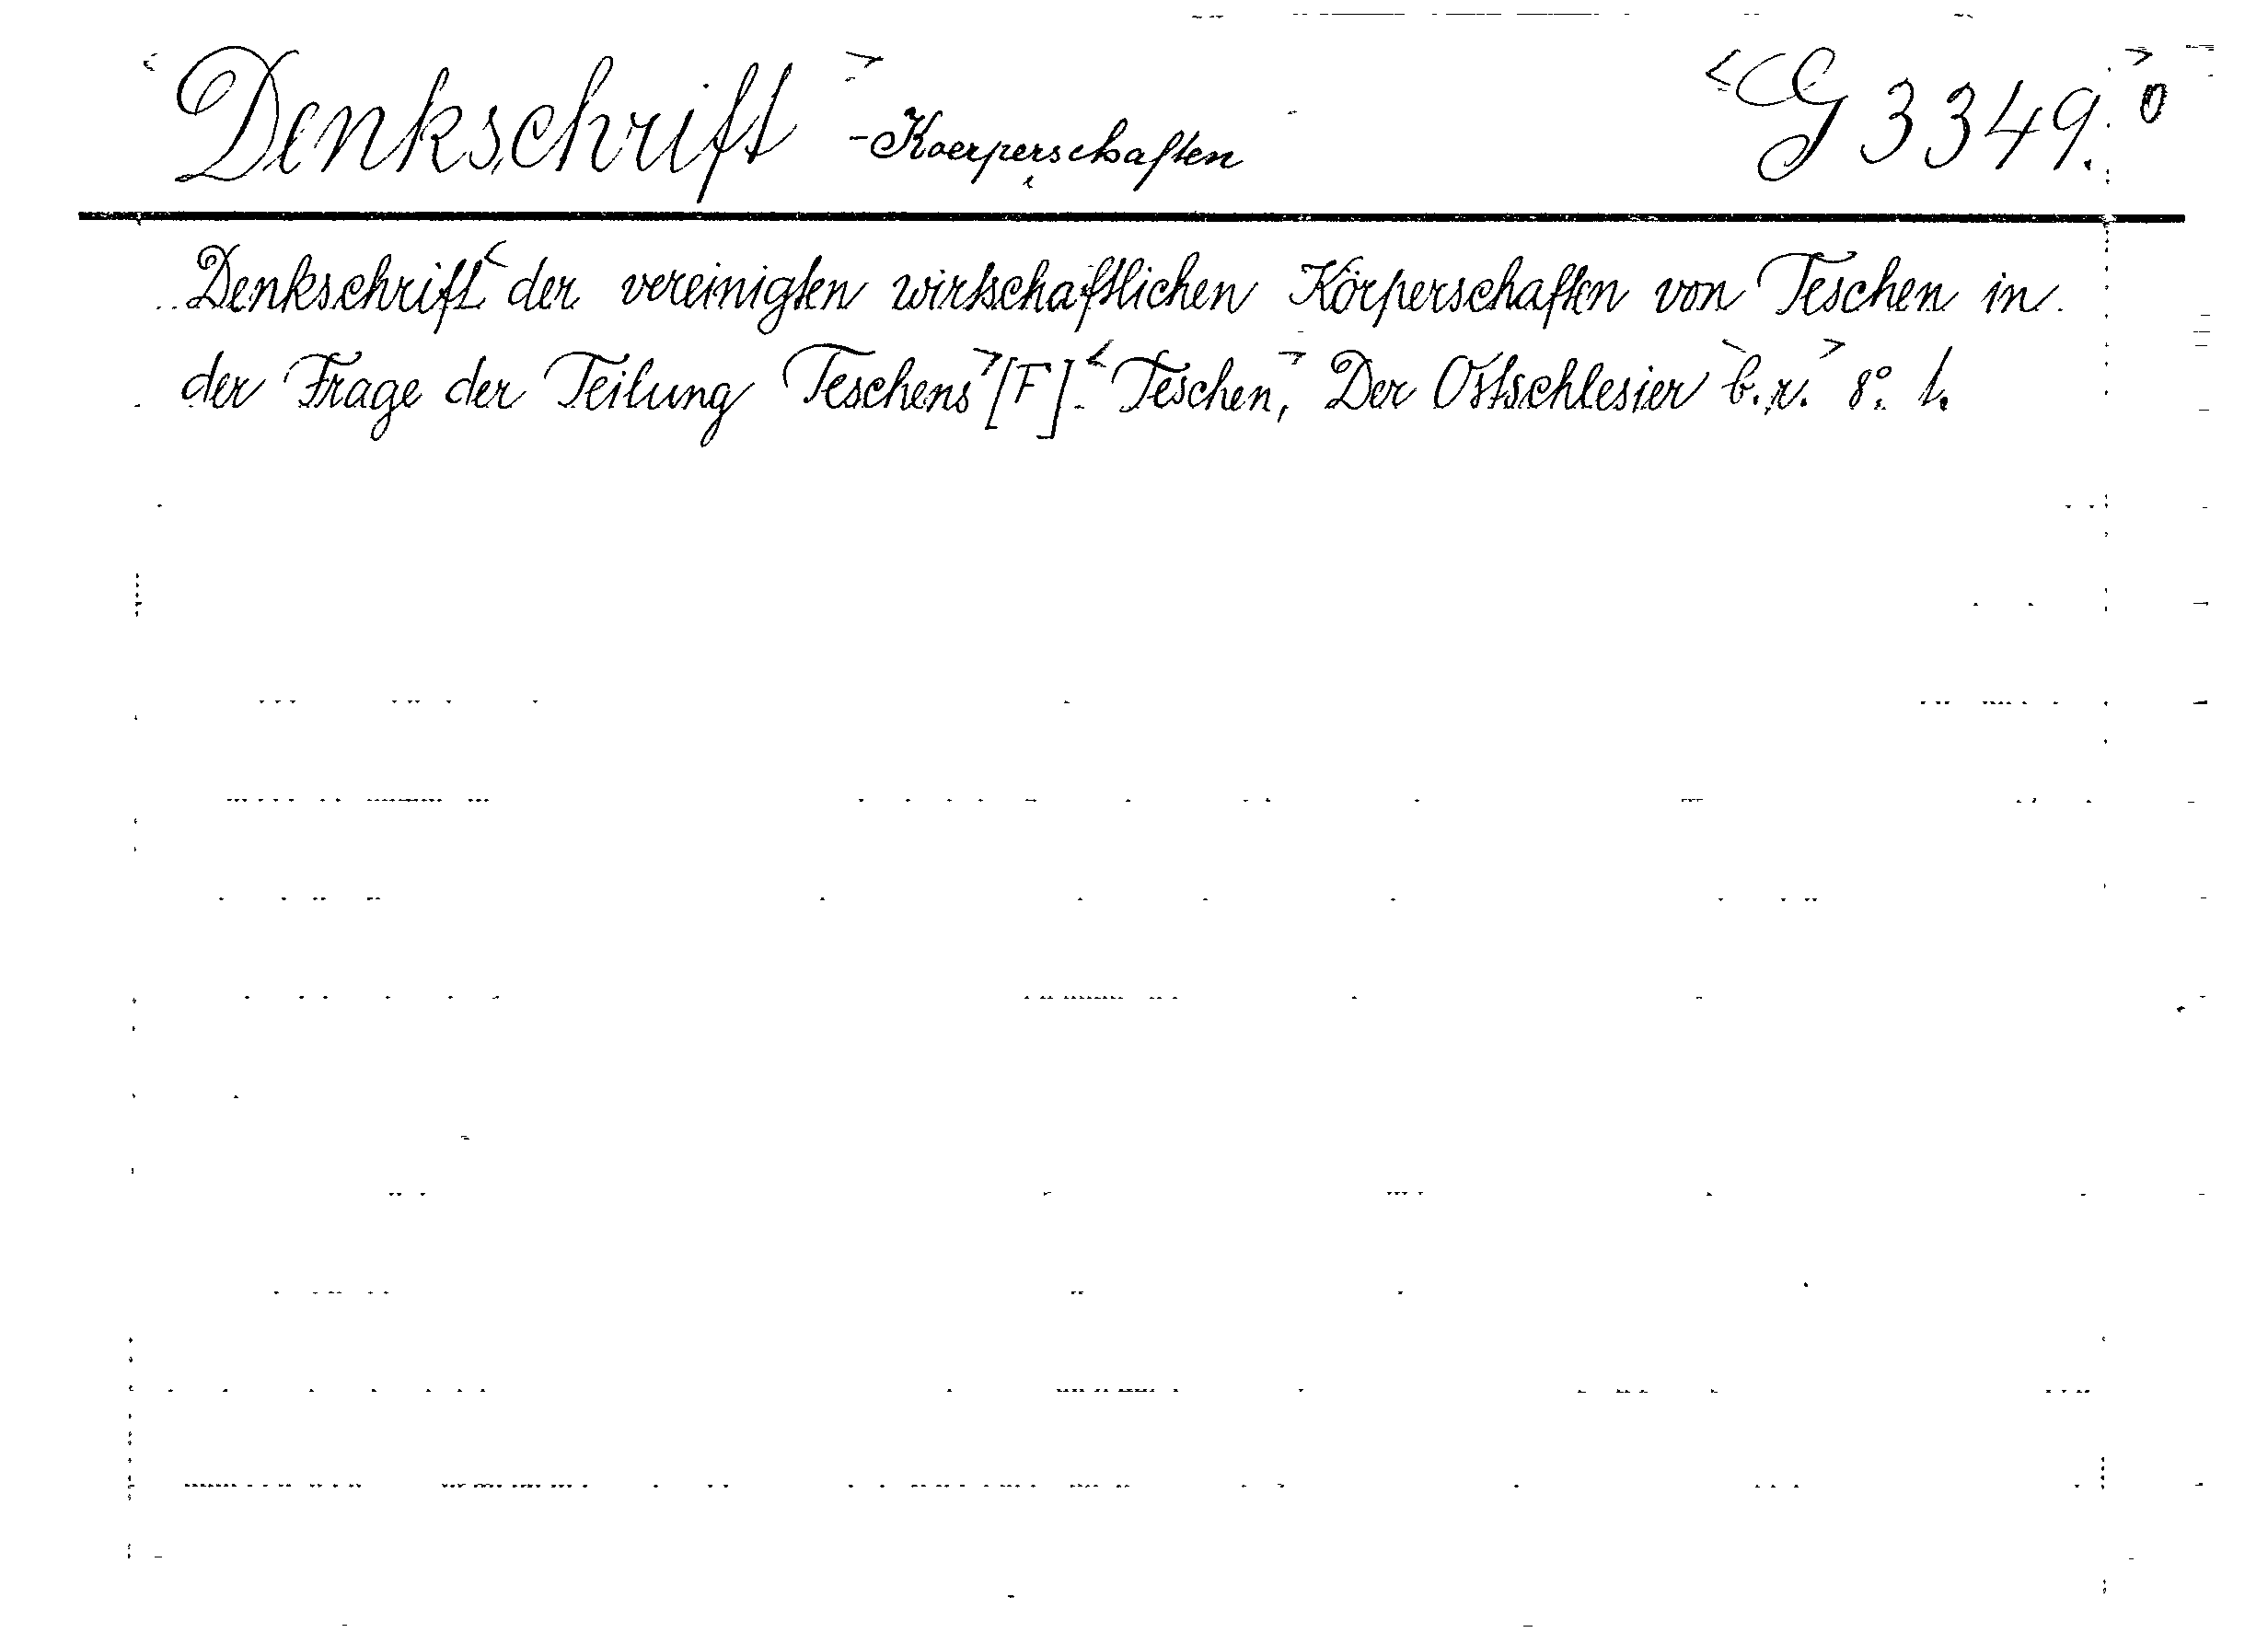 <Denkschrift> -Koerperschaften <G 3349.> 0
Denkschrift< der vereinigten wirtschaftlichen Körperschaften von Teschen in
der Frage der Teilung Teschens>[F].<Teschen,> Der Ostschlesier b.r.> 8° 1.